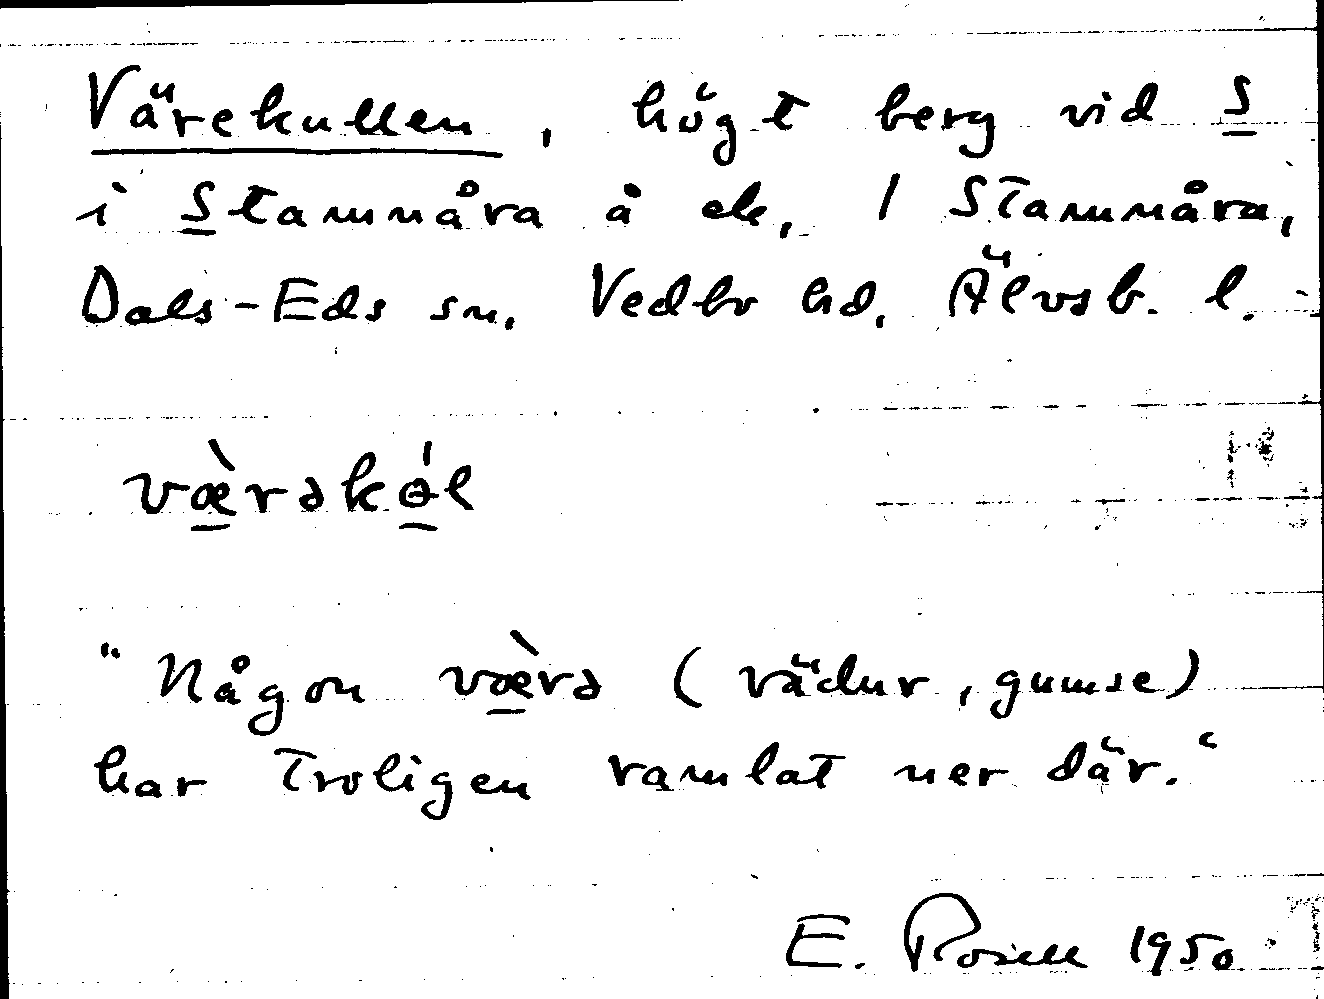 Värekullen, högt berg vid S
i Stamnåra å ek, 1 Stamnåra,
Dals-Eds sn, Vedbo hd, Älvsb. l.
væ̀rəkɵ́l
"Någon væ̀rə (vädur, gumse)
har troligen ramlat ner där."
E. Rosell 1950